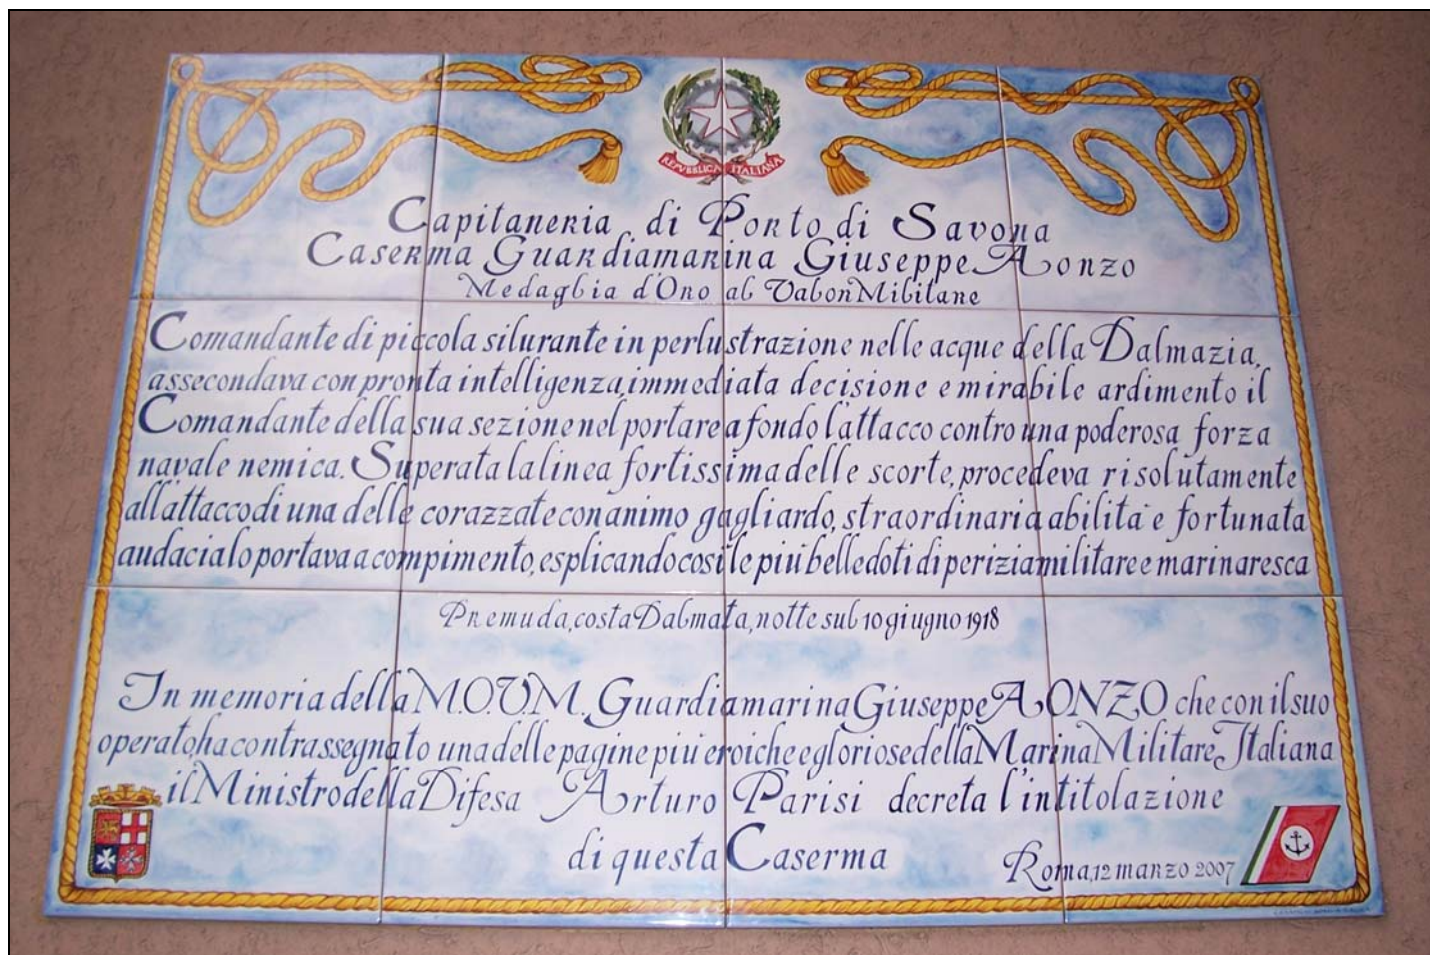 REPVBBLICA ITALIANA
Capitaneria di Porto di Savona
Caserma Guardiamarina Giuseppe Aonzo
Medaglia d'Oro al Valor Militare
Comandante di piccola silurante in perlustrazione nelle acque della Dalmazia,
assecondava con pronta intelligenza, immediata decisione e mirabile ardimento il
Comandante della sua sezione nel portare a fondo l'attacco contro una poderosa forza
navale nemica. Superata la linea fortissima delle scorte, procedeva risolutamente
all'attacco di una delle corazzate con animo gagliardo, straordinaria abilità e fortunata
audacia lo portava a compimento, esplicando così le più belle doti di perizia militare e marinaresca
Premuda, costa Dalmata, notte sul 10 giugno 1918
In memoria della M.O.V.M. Guardiamarina Giuseppe AONZO che con il suo
operato, ha contrassegnato una delle pagine più eroiche e gloriose della Marina Militare Italiana
il Ministro della Difesa Arturo Parisi decreta l'intitolazione
di questa Caserma
Roma, 12 marzo 2007